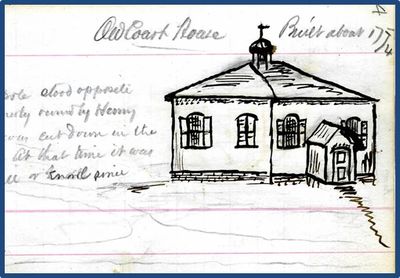 Old Court House Built about 17
stood opposite
owned by Henry
was cut down in the
At that time it was
or Knoll